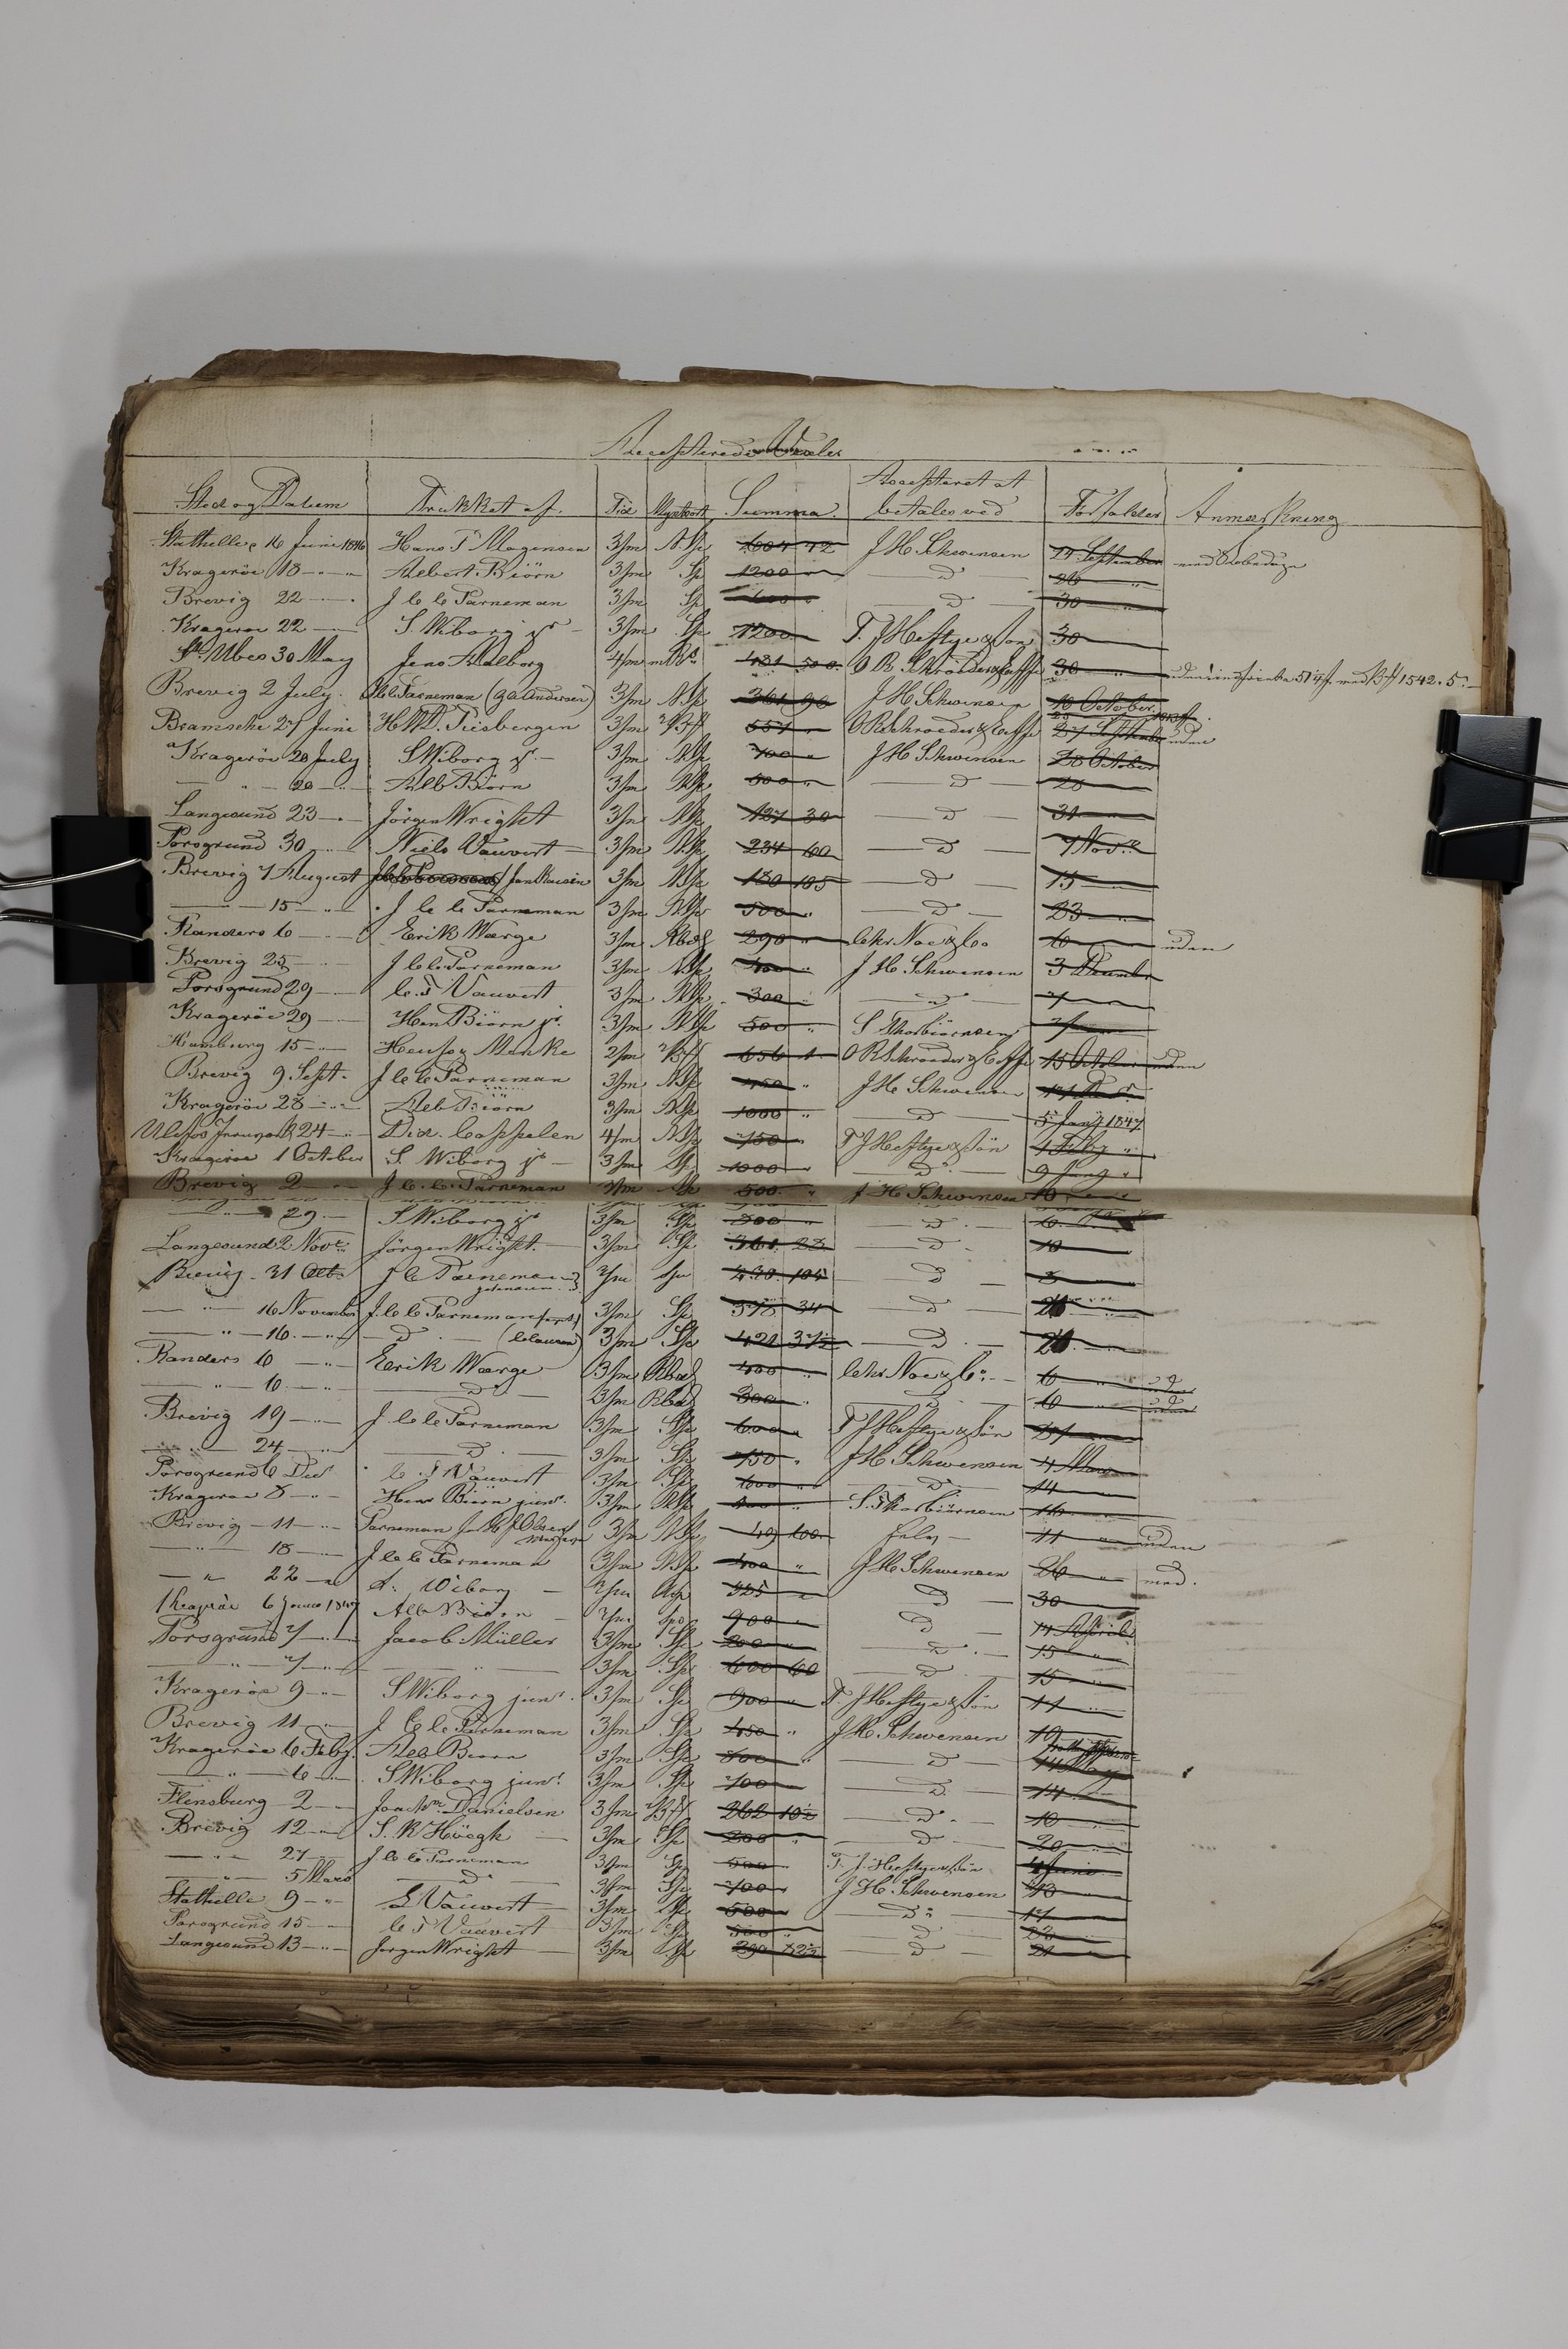 Accepterede Vexler
Sted og Datum Trukket af. Tid Myntsort Summa. Accepteret at betales ved Forfalder Anmærkning
Stathelle 16 Juni 1846 Hans T Mogensen 3/m N.Sp 604 72 J H. Schwensen 24 September med
Kragerøe 18 Albert Biörn 3/m Sp 1200 " d 26 "
Brevig 22 J C C Parneman 3/m Sp 600 " d 30 "
Kragerøe 22 S. Wiborg jr 3/m Sp 1200 T. J Heftye & Søn 30
St Ubes 30 May Jens Aalborg 4/m 481 500 O R Schröder & Co 30 " 1542. 5
Brevig 2 July. Parneman (G A Andersen) 3/m N.Sp 361 96 J H Schwensen 10 October
Bramsche 27 Juni H W D. 3/m 657 " O R Schroeder & Co 27 uden
Kragerøe 20 July S Wiborg jr. 3/m N.Sp 700 " J H Schwensen 28 October
" 20 Alb Biörn 3/m N.Sp 800 " d 28
Langesund 23 Jörgen Wright 3/m N.Sp 187 30 d 31
Porsgrund 30 Niels Vauvert 3/m N.Sp 234 60 d 7 Novb
Brevig 7 August 3/m N.Sp 180 105 d 15
15 J C C Parneman 3/m N.Sp 500 " d 23 "
Randers 6 Erik Wærge 3/m Rbd 290 " Chr Noe & Co 6 uden
Brevig 25 J C C Parneman 3/m N.Sp 400 " J H Schwensen 3 Decembr
Porsgrund 29 C. T Vauvert 3/m N.Sp 300 " d 7
Kragerøe 29 Hen Biörn jr. 3/m N.Sp 500 " S Thorbiörnsen 7
Hamburg 15 & Menke 2/m 656 1 O R Schröeder & Co 15 October uden
Brevig 9. Sept. J C C Parneman 3/m N.Sp 450 " J H Schwensen 17 Dec
Kragerøe 28 Alb Biörn 3/m N.Sp 1000 " d 5 Jany 1847
Ulefos Jernværk 24 Did. Cappelen 4/m N.Sp 750 " T J Heftye & Søn 1 Feby "
Kragerøe 1 October S. Wiborg jr 3/m Sp 1000 d 9 Jany "
Brevig 2 J. C. C. Parneman 3/m Sp 500 " J H Schwensen 10
" 29. S Wiborg jr 3/m Sp 500 " d 6
Langesund 2 Novr Jörgen Wright. 3/m Sp 361 28 d 10
Brevig 31 Octb J C Parneman 3/m Sp 430 105 d 8
" 16 November J. C C Parneman 3/m Sp 378 34 d 24
" 16 d (Clausen) 3/m Sp 421 37½ d 24
Randers 6 Erik Wærge 3/m Rbd 400 " Chr Noe & Co 6 " uden
" 6 d 3/m Rbd 300 " d 6 " uden
Brevig 19 J. C C Parneman 3/m Sp 600 " T J Heftye & Søn 27
" 24 d 3/m Sp 750 " J H. Schwensen 4 Mars
Porsgrund 6 Decr C. T Vauvert 3/m Sp 600 " d 14
Kragerøe 8 Hen Biörn junr. 3/m N.Sp 400 " S. Thorbiörnsen 16
Brevig 11 Parneman 3/m N.Sp 49 100 11 " uden
" 18 J C C Parneman 3/m N.Sp 400 " J H Schwensen 26 " med.
" 22 S. Wiborg 3/m Sp 325 " d 30
Kragerøe 6 Januar 1847 Alb Biörn 3/m Sp 900 " d 14 April
Porsgrund 7 Jacob Müller 3/m Sp 200 " d 15 "
" 7 " 3/m Sp 600 60 d 15 "
Kragerøe 9 S Wiborg junr. 3/m Sp 900 " T. J Heftye & Søn 17
Brevig 11 J C C Parneman 3/m Sp 450 " J H. Schwensen 19
Kragerøe 6 Feby. Alb Biørn 3/m Sp 800 " d 14 May
" 6 S Wiborg junr. 3/m Sp 700 d 14
Flensburg 2 Joachm Danielsen 3/m 262 10 d 10
Brevig 12 S. R Höegh 3/m Sp 200 " d 20
" 27 J C C Parneman 3/m Sp 500 T. J. Heftye & Søn 4 Juni
" 5 Mars d 3/m Sp 700 J H Schwensen 13
Stathelle 9 S Vauvert 3/m Sp 500 d 17
Porsgrund 15 C T Vauvert 3/m Sp 500 d 23
Langesund 13 Jørgen Wright 3/m Sp 230 d 21